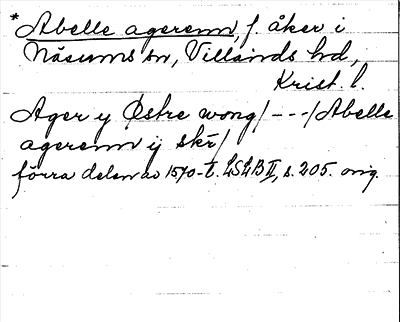 * Abelle agerenn, f. åker i
Näsums sn, Villands hd,
Krist. l.
Ager y Østre wong/---/Abelle
agerenn ij skr/
förra delen av 1570-t. LSLB II, s. 205. orig.